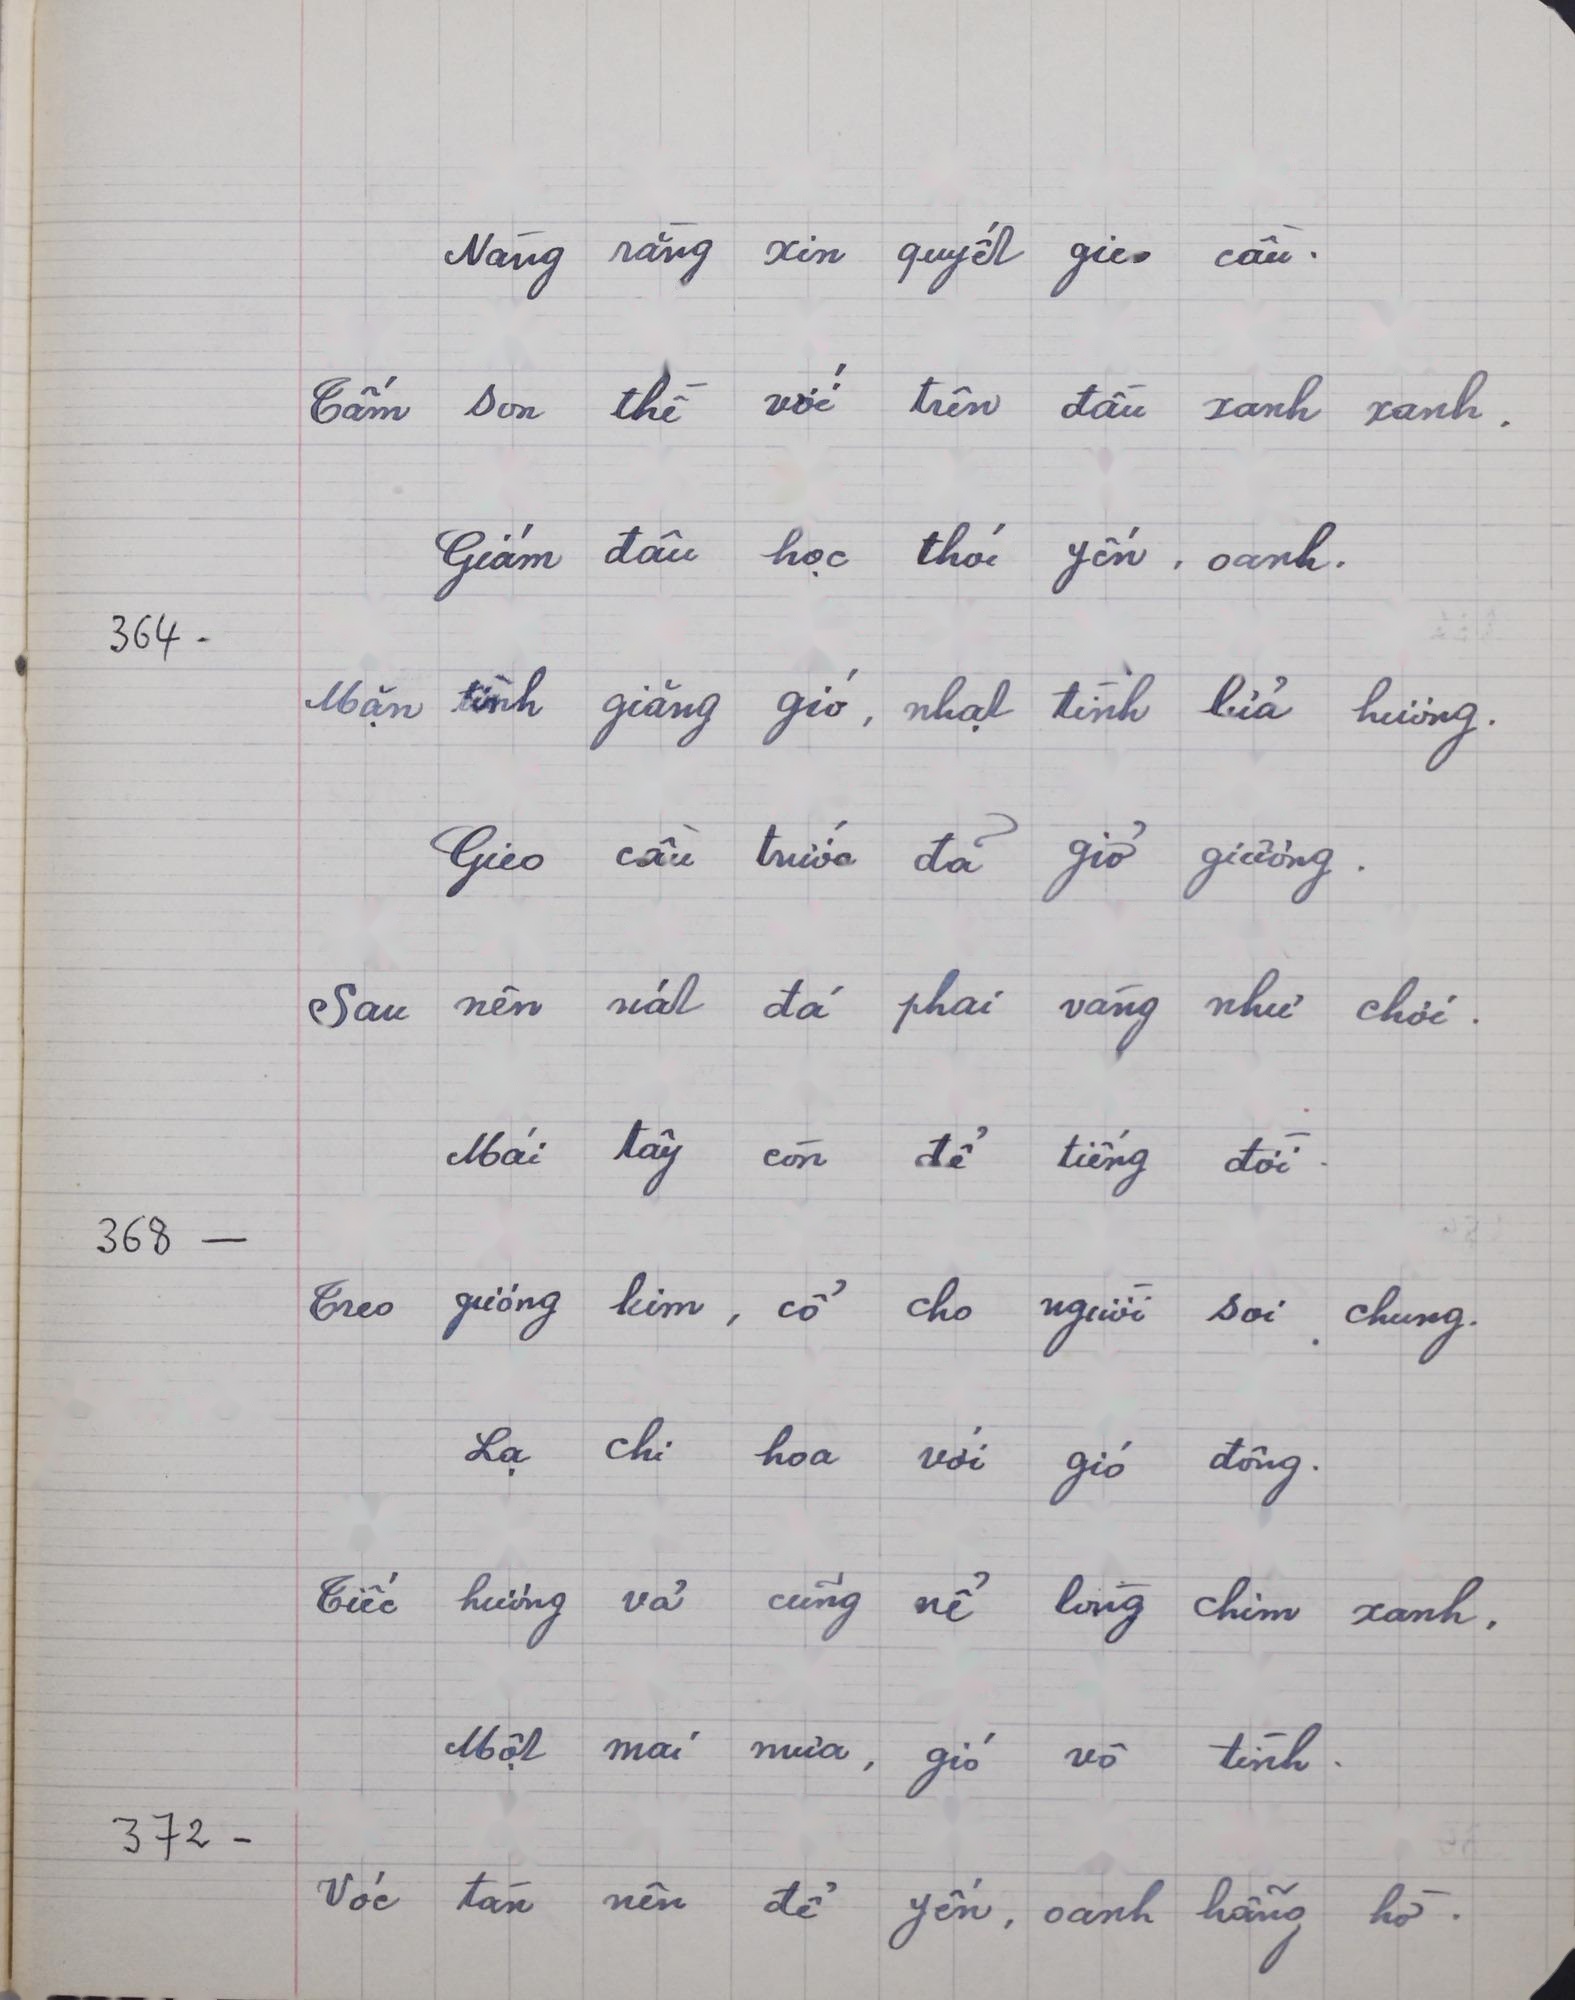 Nàng rằng xin quyết gieo cầu.
Tấm son thề với trên đầu xanh xanh.
Giám đâu học thói yến, oanh.
364 -
Mặn tình giăng gió, nhạt tình lửa hương.
Gieo cầu trước đã giở giường.
Sau nên nát đá phai vàng như chơi.
Mái tây còn để tiếng đời.
368 —
Treo gương kim, cổ cho người soi chung.
Lạ chi hoa với gió đông.
Tiếc hương vả cũng nể lòng chim xanh.
Một mai mưa, gió vô tình.
372 -
Vóc tàn nên để yến, oanh hững hờ.